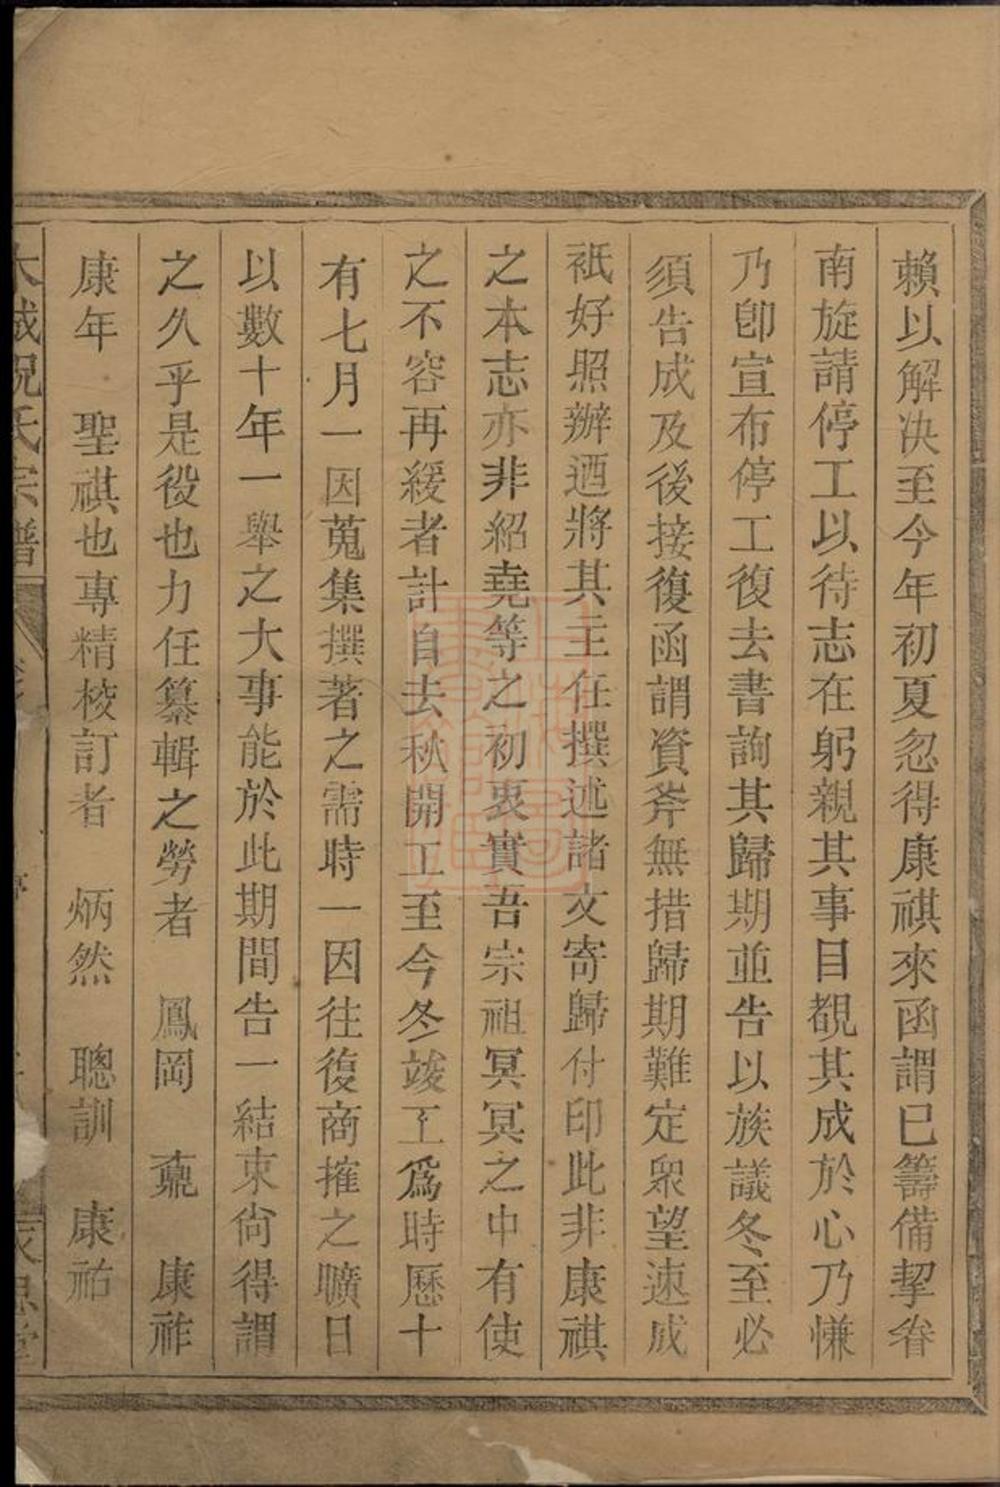 賴以解決至今年初夏忽得康祺來函謂已籌備挈眷
南旋請停工以待志在躬親其事目覩其成於心乃慊
乃卽宣布停工復去書詢其歸期並告以族議冬至必
須告成及後接復函謂資斧無措歸期難定衆望速成
祇好照辦迺將其主任撰述諸文寄歸付印此非康祺
之本志亦非紹堯等之初衷實吾宗祖冥冥之中有使
之不容再緩者計自去秋開工至今冬竣工爲時歷十
有七月一因蒐集撰著之需時一因往復商搉之曠日
以數十年一舉之大事能於此期間告一結束尙得謂
之久乎是役也力任纂輯之勞者 鳳岡 鼐 康祚
康年 聖祺也專精校訂者 炳然 聰訓 康祐
氏宗譜